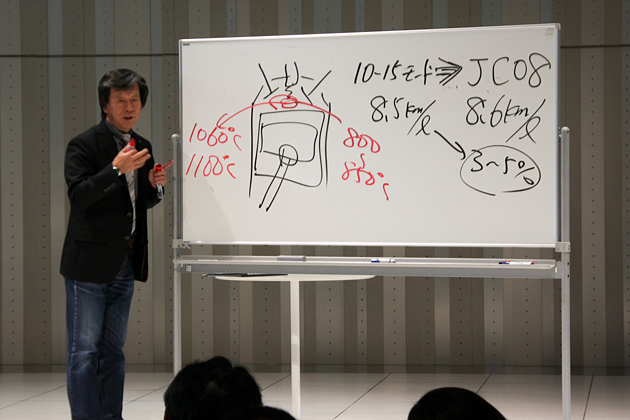 10-15モード⇒JC08
8.5km/ℓ 8.6km/ℓ
3~5%
1060℃
1100℃
800
~
850℃